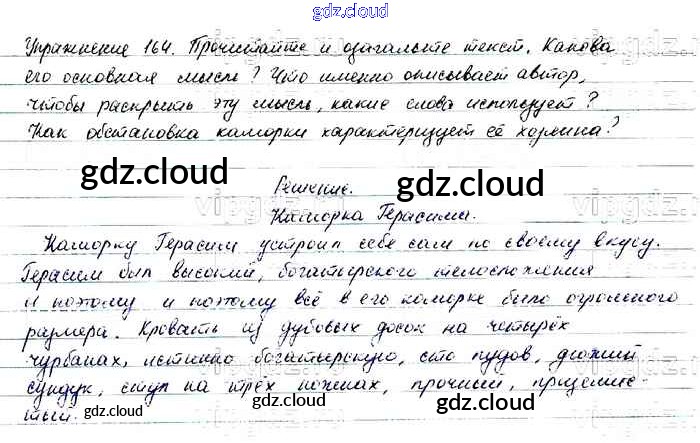 gdz.cloud
Упражнение 164. Прочитайте и озагальте текст. Какова
его основная мысль? Что именно описывает автор,
чтобы раскрыть эту мысль, какие слова использует?
Как обстановка каморки характеризует её хозяина?
gdz.cloud
gdz.cloud
Решение.
Каморка Герасима.
Каморку Герасим устроил себе сам по своему вкусу.
Герасим был высокий, богатырского телосложения
и поэтому и поэтому всё в его каморке было огромного
размера. Кровать из дубовых досок на четырёх
чурбанах, истинно богатырскую, сто пудов, дюжий
сундук, стул на трёх ножках, прочный, приземис-
тый.
gdz.cloud
gdz.cloud
gdz.cloud